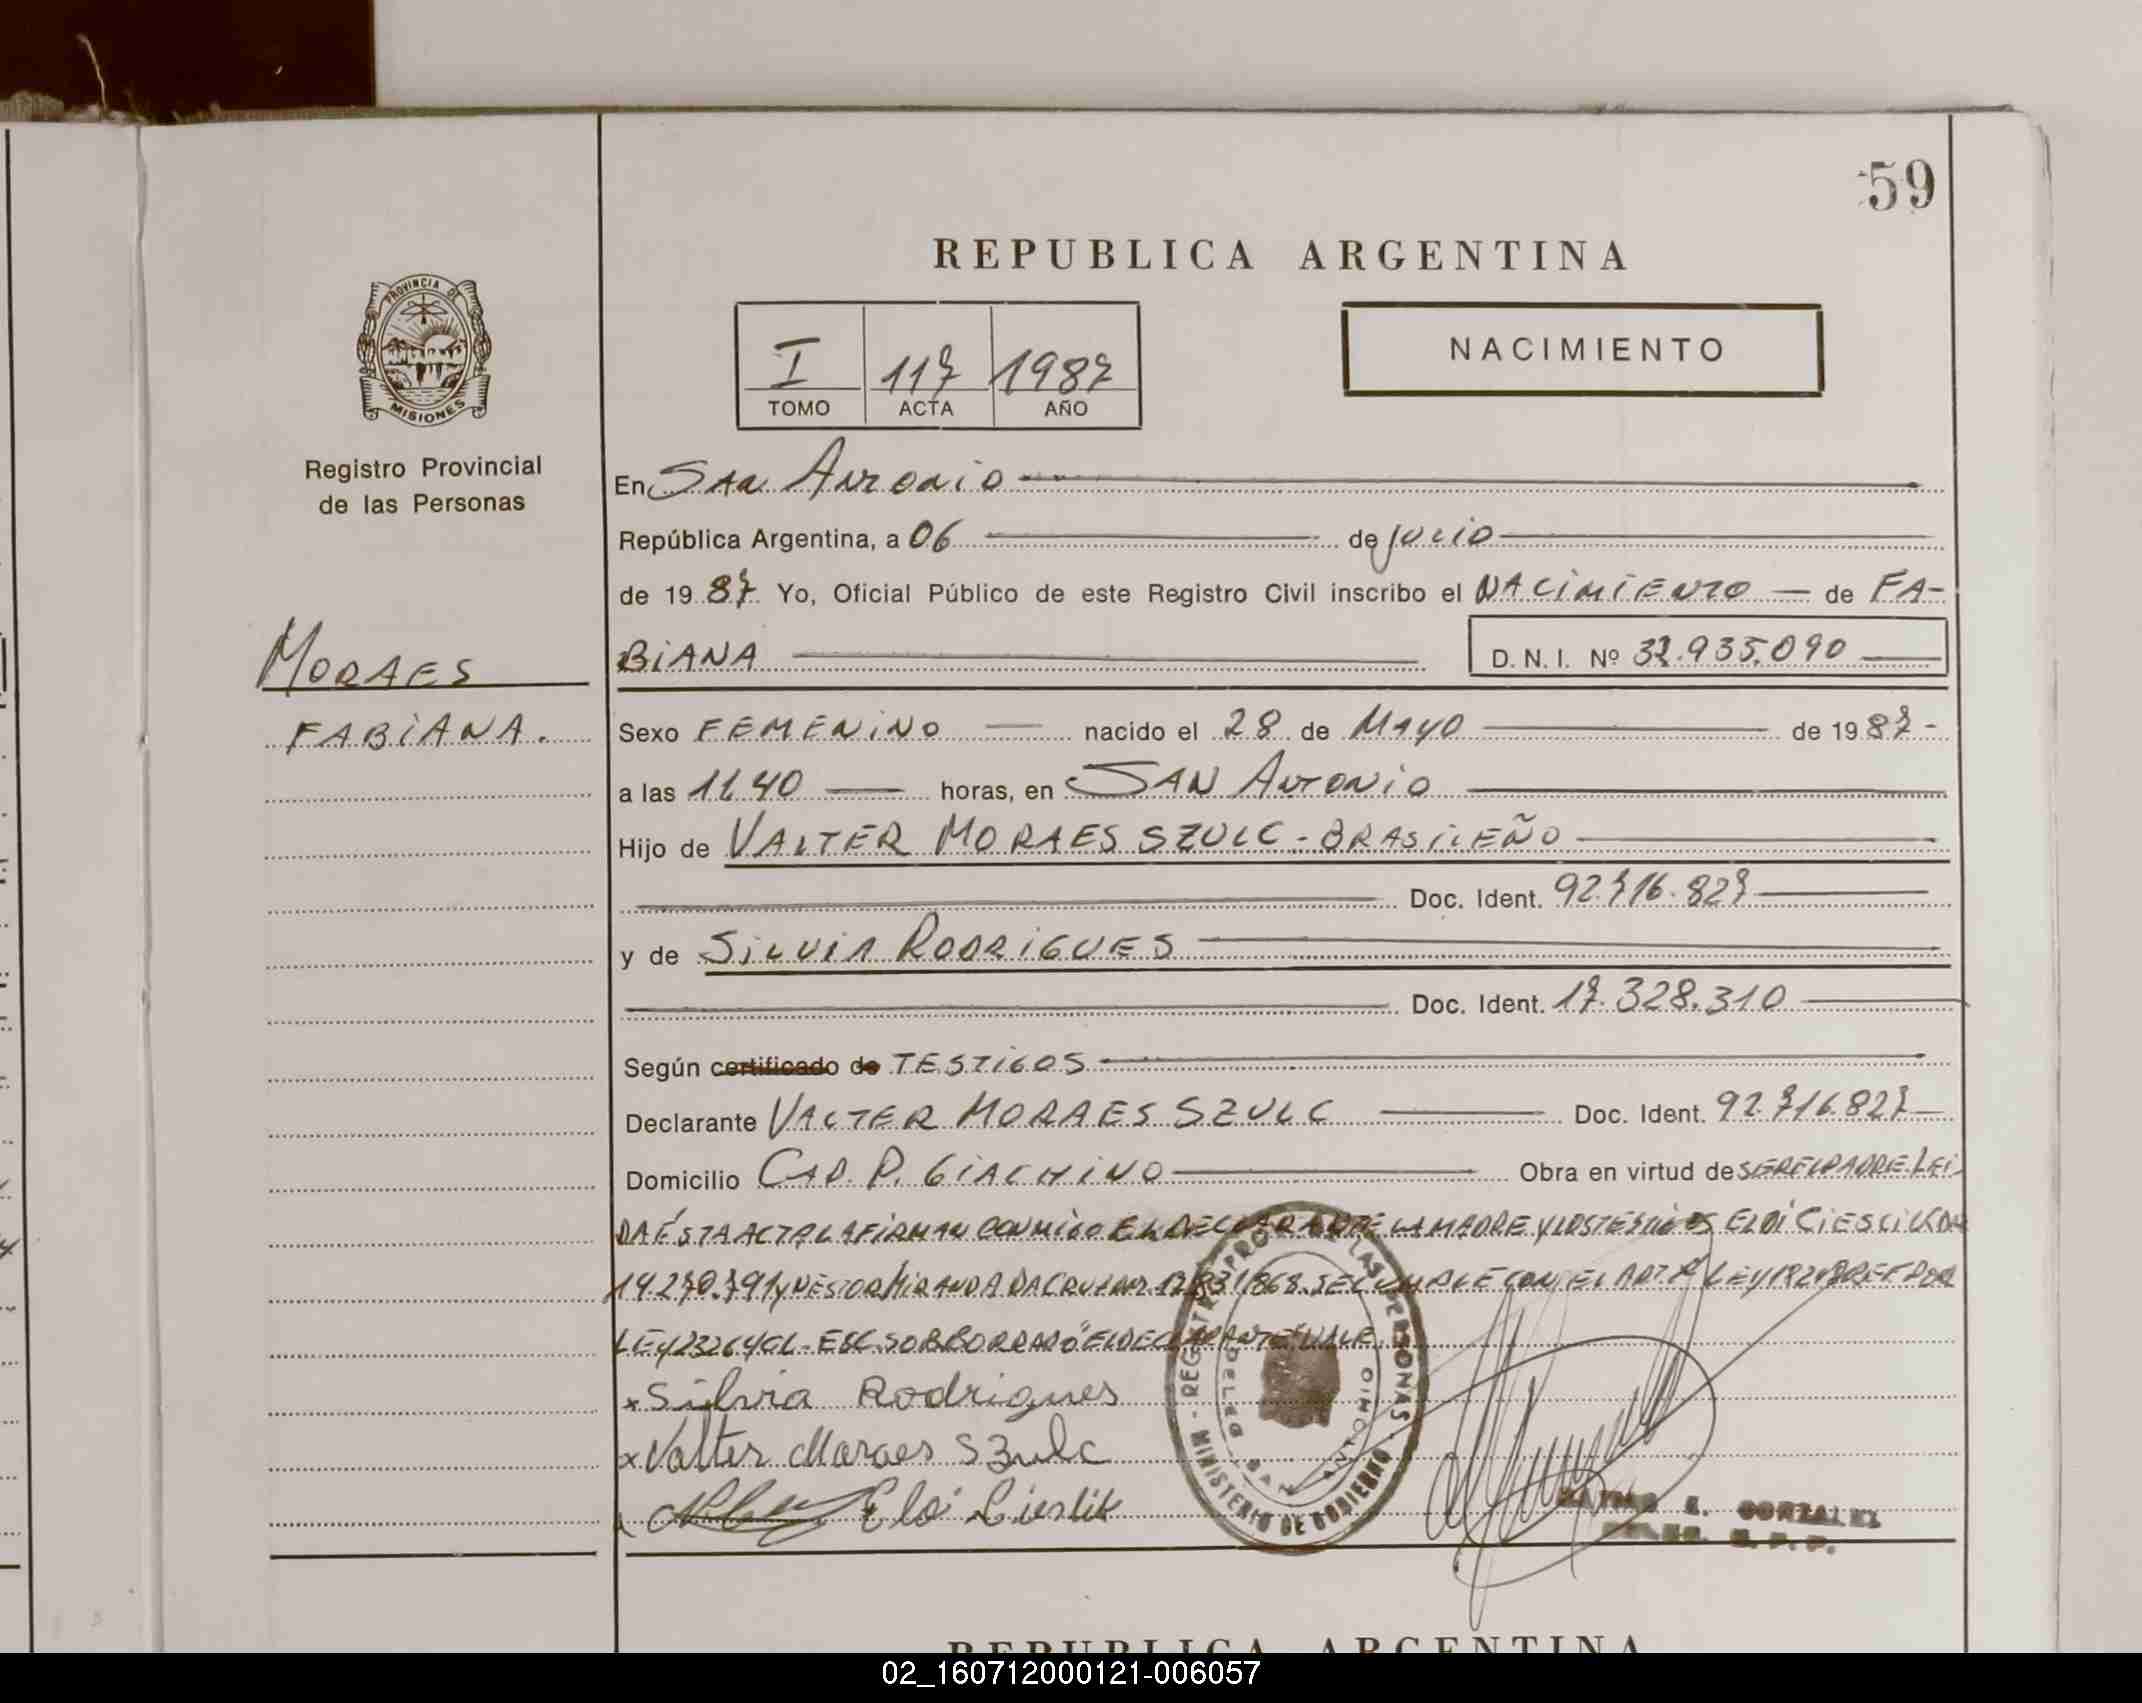 59
REPUBLICA ARGENTINA
PROVINCIA DE
MISIONES
Registro Provincial
de las Personas
I 117 1987
TOMO ACTA AÑO
NACIMIENTO
En San Antonio
República Argentina, a 06 de Julio
de 1987 Yo, Oficial Público de este Registro Civil inscribo el NACIMIENTO de FA-
BIANA D.N.I. Nº 32.935.090
MORAES
FABIANA.
Sexo FEMENINO nacido el 28 de MAYO de 1987-
a las 11.40 horas, en SAN ANTONIO
Hijo de VALTER MORAES SZULC - BRASILEÑO
Doc. Ident. 92.716.827
y de SILVIA RODRIGUES
Doc. Ident. 17.328.310
Según certificado de TESTIGOS
Declarante VALTER MORAES SZULC Doc. Ident. 92.716.827
Domicilio CAP. P. GIACHINO Obra en virtud de SER EL PADRE. LEI
DA ÉSTA ACTA LA FIRMAN CONMIGO EL DECLARANTE LA MADRE Y LOS TESTIGOS ELOI CIESLIK
14.270.791 y NESTOR MIRANDA DA CRUZ SE CUMPLE CON EL ART LEY REF POR
LEY 23264 ESC. SOB BORRADO "EL DECLARANTE" VALE.
x Silvia Rodrigues
x Valter Moraes Szulc
Eloi Cieslik
REGISTRO PROV. DE LAS PERSONAS - MINISTERIO DE GOBIERNO
SAN ANTONIO
E. GONZALEZ
REPUBLICA ARGENTINA
02_160712000121-006057